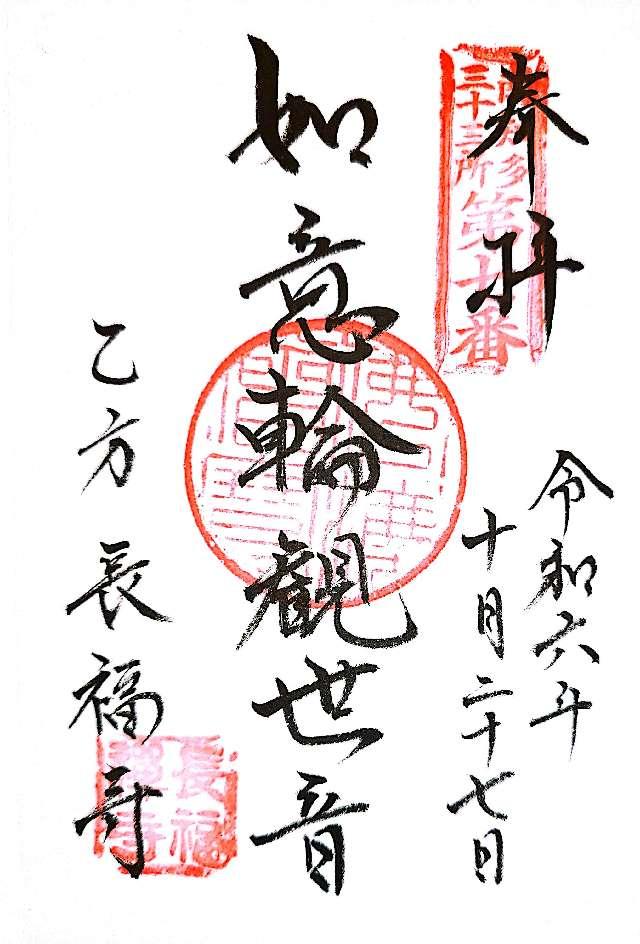 奉拝
三十三所
第十番
令和六年
十月二十七日
如意輪観世音
乙方 長福寺
長福